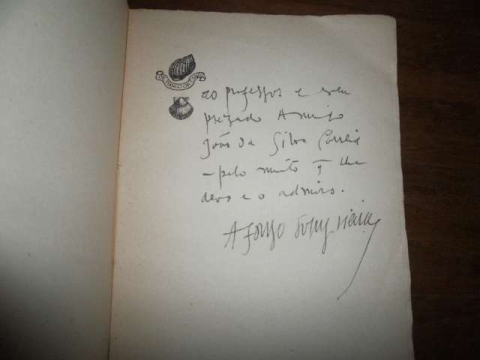 ao professor e seu
prezado Amigo
João da Silva Correia
– pelo muito q̄ lhe
devo e o admiro.
Affonso Lopes Vieira